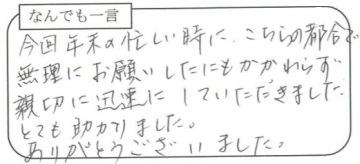 なんでも一言
今回年末の忙しい時に、こちらの都合で
無理にお願いしたにもかかわらず
親切に迅速にしていただきました。
とても助かりました。
ありがとうございました。